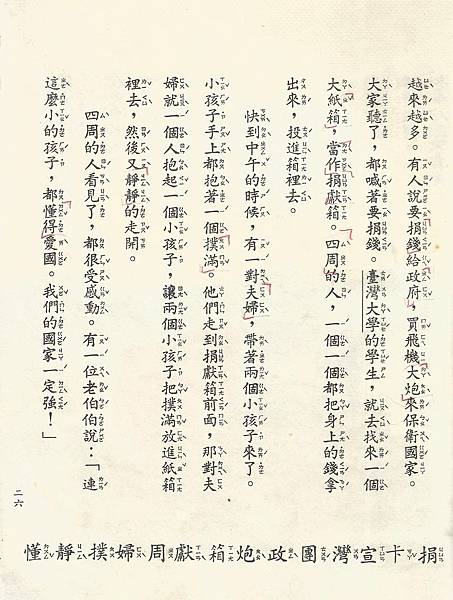 越來越多。有人說要捐錢給政府，買飛機大炮來保衛國家。
大家聽了，都喊著要捐錢。臺灣大學的學生，就去找來一個
大紙箱，當作捐獻箱。四周的人，一個一個都把身上的錢拿
出來，投進箱裡去。
快到中午的時候，有一對夫婦，帶著兩個小孩子來了。
小孩子手上都抱著一個撲滿。他們走到捐獻箱前面，那對夫
婦就一個人抱起一個小孩子，讓兩個小孩子把撲滿放進紙箱
裡去，然後又靜靜的走開。
四周的人看見了，都很受感動。有一位老伯伯說：「連
這麼小的孩子，都懂得愛國。我們的國家一定強！」
二六
捐卡宣灣團政炮箱獻周婦撲靜懂